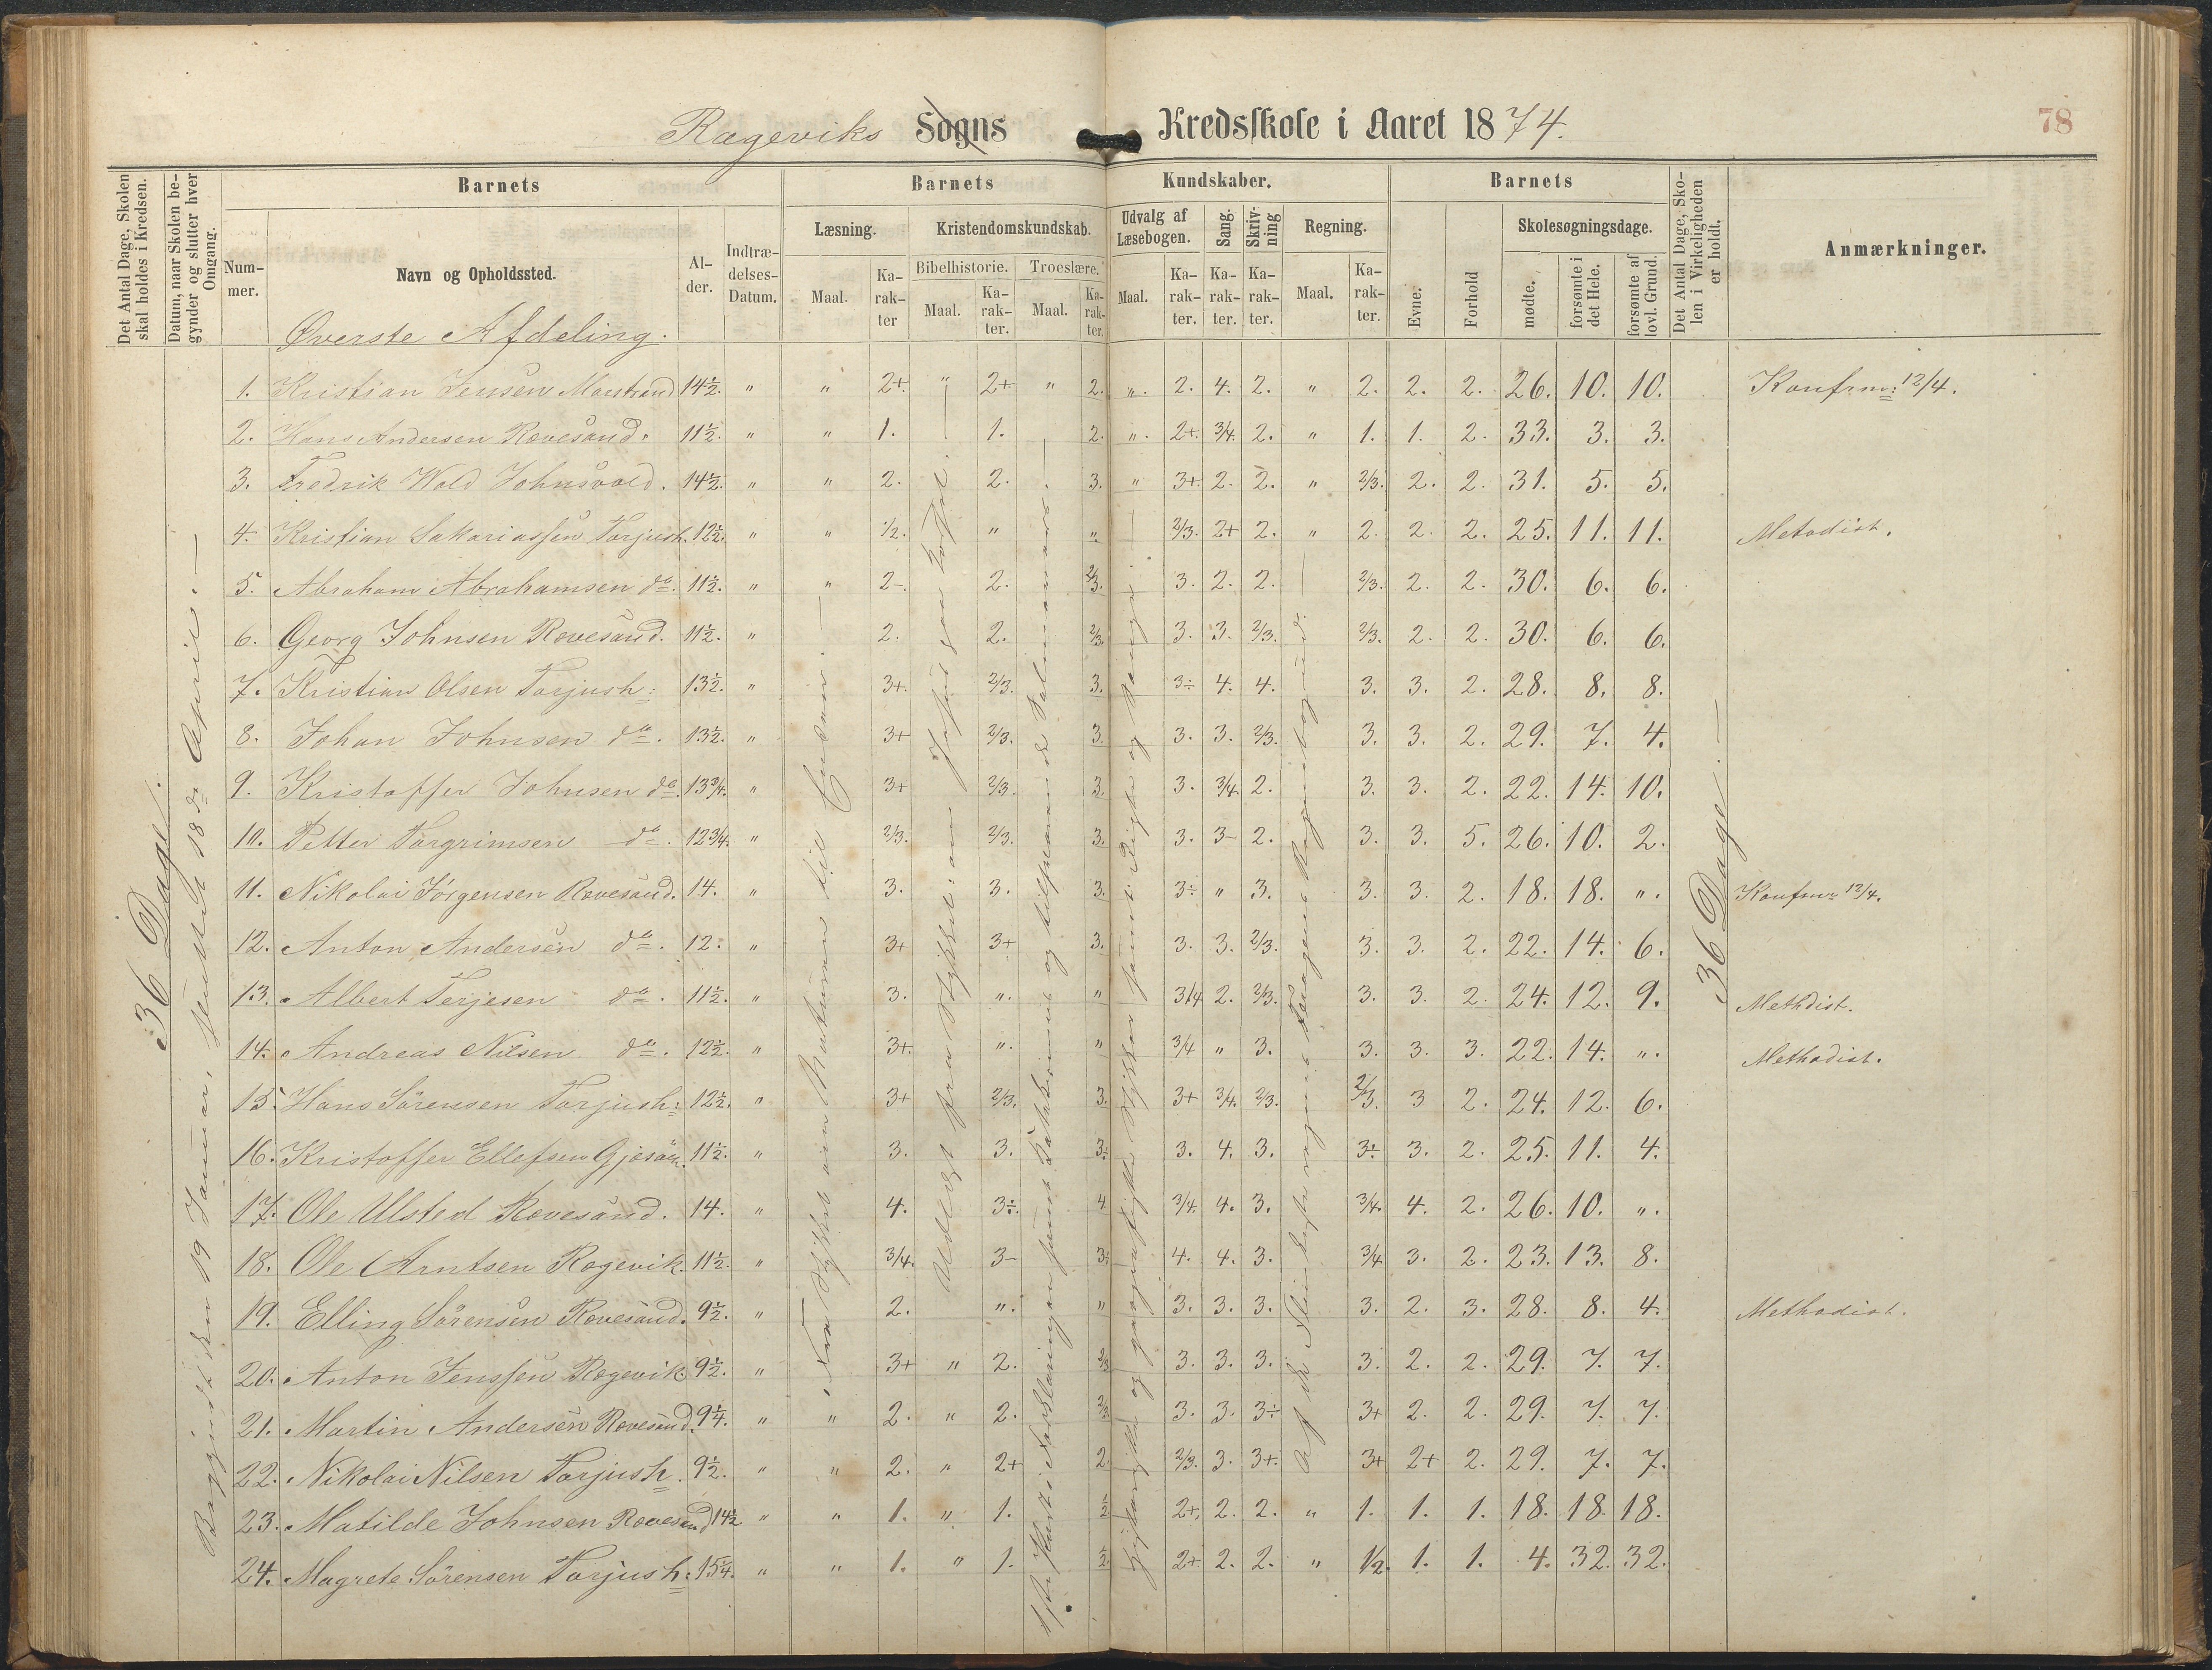 Rægeviks Sogns Kredsskole i Aaret 1874.
78
Det Antal Dage, Skolen skal holdes i Kredsen.
Datum, naar Skolen begynder og slutter hver Omgang.
Barnets
Barnets
Kundskaber.
Barnets
Det Antal Dage, Skolen i Virkeligheden er holdt.
Anmærkninger.
Nummer.
Navn og Opholdssted.
Alder.
Indtrædelses-Datum.
Læsning.
Kristendomskundskab.
Udvalg af Læsebogen.
Sang.
Skrivning
Regning.
Evne.
Forhold
Skolesøgningsdage.
Maal.
Karakter
Bibelhistorie.
Troeslære.
Maal.
Karakter.
Maal.
Karakter.
Maal.
Karakter.
Karakter.
Karakter.
Maal.
Karakter.
mødte.
forsømte i det Hele.
forsømte af lovl. Grund.
Øverste Afdeling.
36 Dage.
36 Dage.
1. Kristian Jensen Marstrand 14½. " " 2+. " 2+ " 2. ". 2. 4. 2. " 2. 2. 2. 26. 10. 10. Konfirm: 12/4.
2. Hans Andersen Rævesand. 11½. " " 1. 1. 2. ". 2+. 3/4. 2. " 1. 1. 2. 33. 3. 3.
3. Fredrik Wold Johnsvold. 14½. " " 2. 2. 3. " 3+. 2. 2. " 2/3. 2. 2. 31. 5. 5.
4. Kristian Sakariassen Torjush. 12½. " " 1/2. " ". 2/3. 2+ 2. " 2. 2. 2. 25. 11. 11. Metodist.
5. Abraham Abrahamsen do. 11½. " " 2-. 2. 2/3. 3. 2. 2. 2/3. 2. 2. 30. 6. 6.
6. Georg Johnsen Rævesand. 11½. " 2. 2. 2/3. 3. 3. 2/3. 2/3. 2. 2. 30. 6. 6.
7. Kristian Olsen Torjush: 13½. " 3+. 2/3. 3. 3÷ 4. 4. 3. 3. 2. 28. 8. 8.
8. Johan Johnsen do. 13½. " 3+ 2/3. 3. 3. 3. 2/3. 3. 3. 2. 29. 7. 4.
9. Kristoffer Johnsen do. 13¾. " 3+ 2/3. 3. 3. 3/4. 2. 3. 3. 2. 22. 14. 10.
10. Petter Torgrimsen do. 12¾. " 2/3. 2/3. 3. 3. 3- 2. 3. 3. 5. 26. 10. 2.
11. Nikolai Jörgensen Rævesand. 14. " 3. 3. 3. 3÷ " 3. 3. 3. 2. 18. 18. ". Konfirm 12/4.
12. Anton Andersen do. 12. " 3+ 3+ 3. 3. 3. 2/3. 3. 3. 2. 22. 14. 6.
13. Albert Terjesen do. 11½. " 3. ". " 3/4 2. 2/3. 3. 3. 2. 24. 12. 9. Methdist.
14. Andreas Nilsen do. 12½. " 3+. ". " 3/4 " 3. 3. 3. 3. 22. 14. ". Methodist.
15. Hans Sörensen Torjush: 12½. " 3+ 2/3. 3. 3+ 3/4. 2/3. 2/3. 3 2. 24. 12. 6.
16. Kristoffer Ellefsen Gjesöen. 11½. " 3. 3. 3÷ 3. 4. 3. 3÷ 3. 2. 25. 11. 4.
17. Ole Ulsted Rævesand. 14. " 4. 3÷. 4 3/4. 4. 3. 3/4. 4. 2. 26. 10. ".
18. Ole Arntsen Rægevik. 11½. " 3/4. 3- 3÷ 4. 4. 3. 3/4 3. 2. 23. 13. 8.
19. Elling Sörensen Rævesand. 9½. " 2. ". " 3. 3. 3. 3. 2. 3. 28. 8. 4. Methodist.
20. Anton Jenssen Rægevik. 9½. " 3+ " 2. 2/3 3. 3. 3. 3. 2. 2. 29. 7. 7.
21. Martin Andersen Rævesand. 9¼. " " 2. " 2. 2/3. 3. 3. 3÷ 3+ 2. 2. 29. 7. 7.
22. Nikolai Nilsen Torjush. 9½. " " 2. " 2+ 2. 2/3. 3. 3+. 3+ 2+ 2. 29. 7. 7.
23. Matilde Johnsen Rævesand 14½. " " 1. " 1. 1/2 2+. 2. 2. " 1. 1. 1. 18. 18. 18.
24. Magrete Sörensen Torjush: 15¼. " " 1. " 1. 1/2. 2+ 2. 2. " 1/2. 1. 1. 4. 32. 32.
Begyndt den 19 Januar, sluttet 18de April.
Fra Stykket om Naturen til Enden.
Udvalgt fra Stykket om Josef